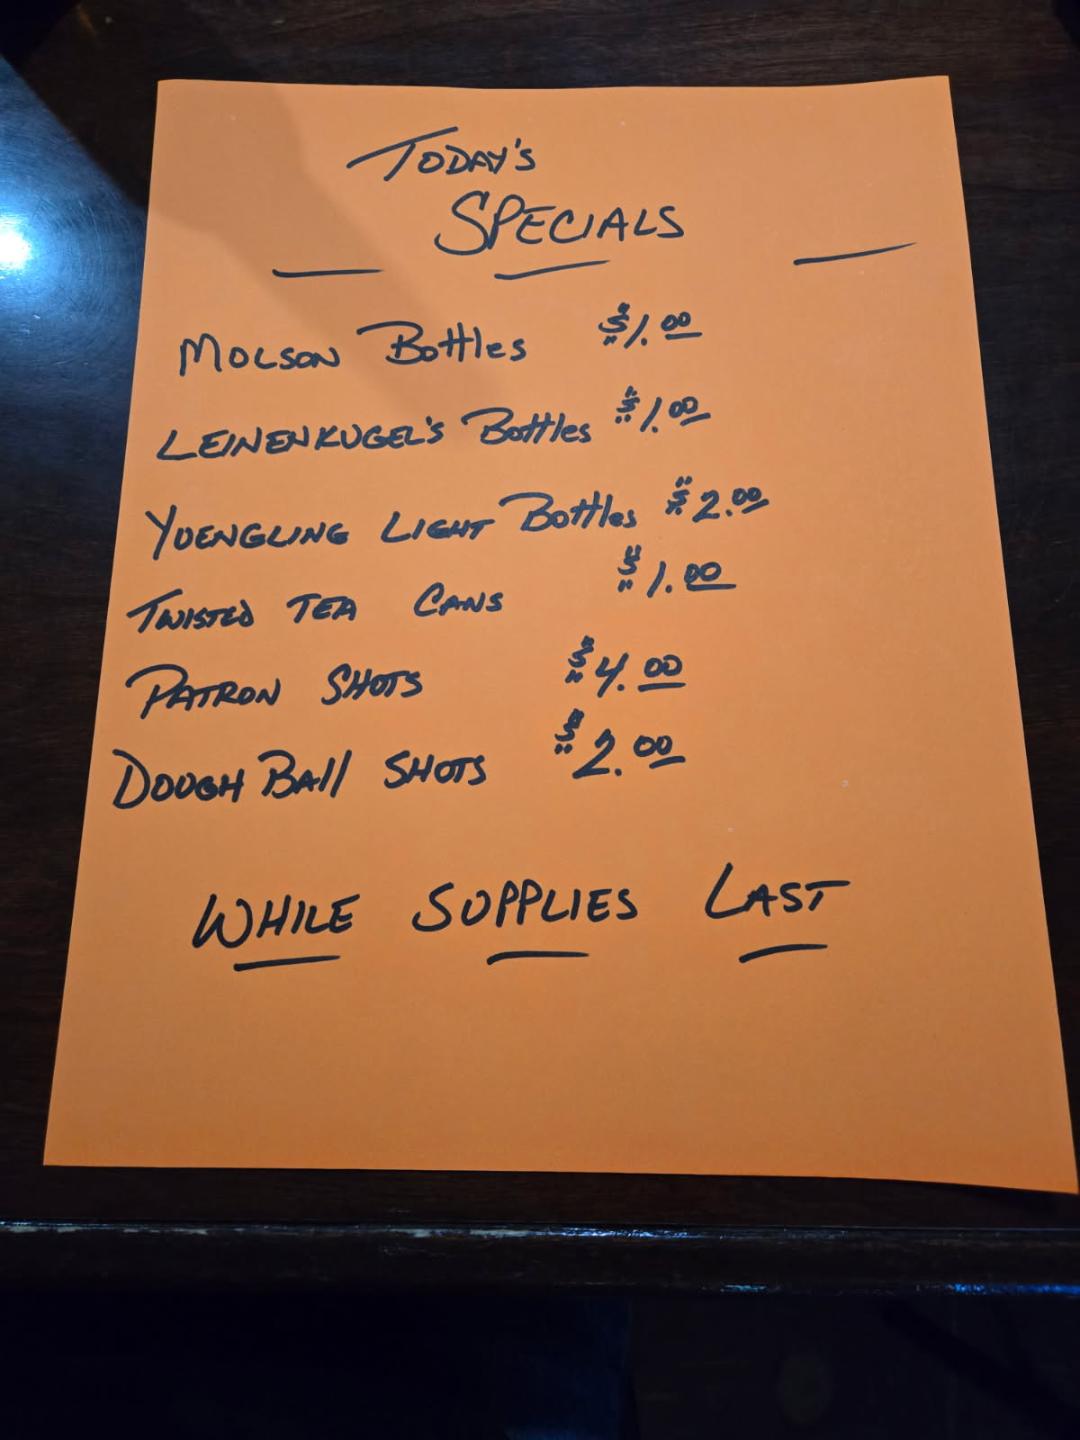 TODAY'S
SPECIALS
MOLSON Bottles $1.00
LEINENKUGEL'S Bottles $1.00
YUENGLING LIGHT Bottles $2.00
TWISTED TEA CANS $1.00
PATRON SHOTS $4.00
DOUGH BAll SHOTS $2.00
WHILE SUPPLIES LAST